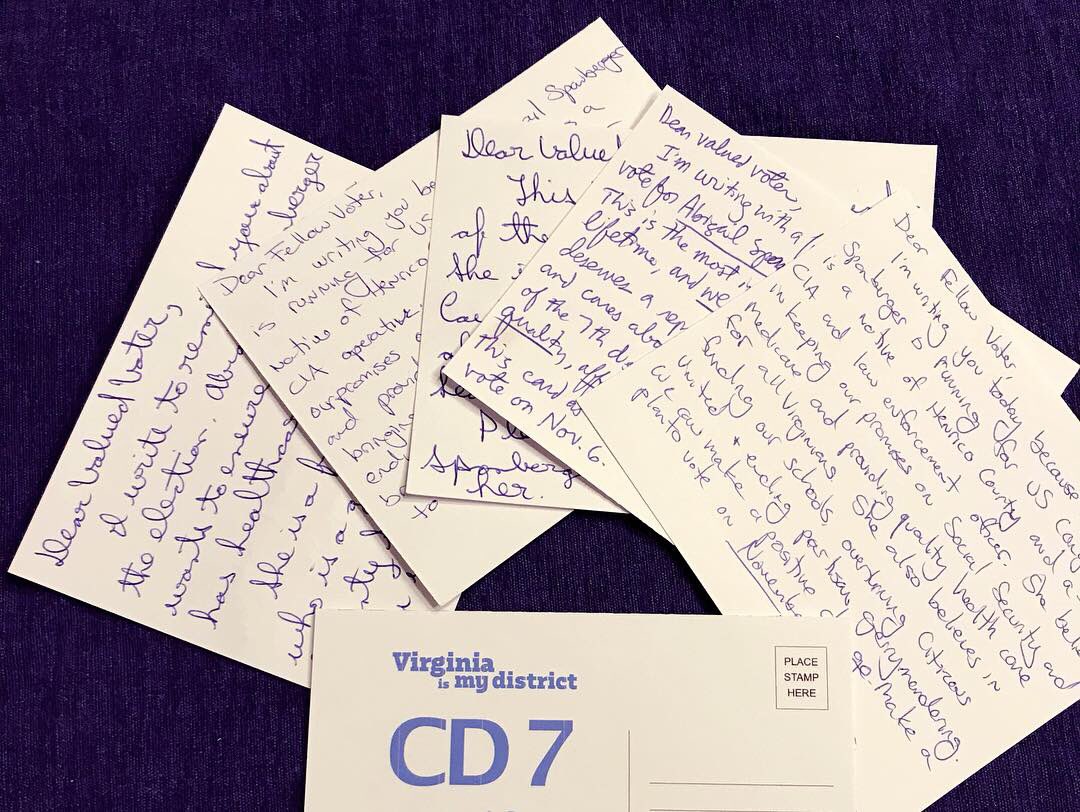 l your about
berger
Dear Valued Voter,
I write to rem
the election. Abi
wants to ensure
has healthca
She is a f
who is a
nty
Dear Fellow Voter,
I'm writing you be
is running for US
native of Henrico
CIA operative.
suppromises
and
bringing
end
be
to
Spanberger
a
Dear Value
This
of the
She i
Car
Ple
Spanberge
her.
Dear valued voter
I'm writing with a
vote for Abigail Span
This is the most i
lifetime, and we
deserves a rep
and cares abo
of the 7th d
quality, aff
This card as
vote on Nov. 6.
Dear Fellow Voter,
I'm writing you today because
Spanberger is running for US Cong
is a native of Henrico County and a
CIA and law enforcement officer. She beli
in keeping our promises on Social Security and
Medicare and providing quality health care
for all Virginians. She also believes in
funding our schools, overturning Citizens
United & ending partisan gerrymandering.
We can make a positive
Make a
plan to vote on Novemb
Virginia
is my district
CD 7
PLACE
STAMP
HERE